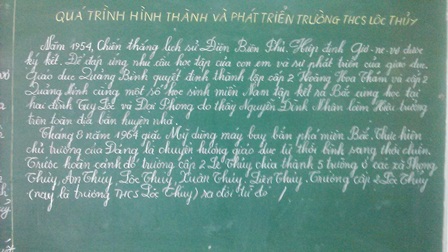 QUÁ TRÌNH HÌNH THÀNH VÀ PHÁT TRIỂN TRƯỜNG THCS LỘC THỦY
Năm 1954, Chiến thắng lịch sử Điện Biên Phủ, Hiệp định Giơ-ne-vơ được
ký kết. Để đáp ứng nhu cầu học tập của con em và sự phát triển của giáo dục.
Giáo dục Quảng Bình quyết định thành lập cấp 2 Hoàng Hoa Thám và cấp 2
Quảng Ninh cùng một số học sinh miền Nam tập kết ra Bắc cùng học tại
hai đình Tuy Lộc và Đại Phong do thầy Nguyễn Đình Nhân làm Hiệu trưởng
trên toàn địa bàn huyện nhà.
Tháng 8 năm 1964 giặc Mỹ dùng máy bay bắn phá miền Bắc. Thực hiện
chủ trương của Đảng là chuyển hướng giáo dục từ thời bình sang thời chiến.
Trước hoàn cảnh đó trường cấp 2 Lệ Thủy chia thành 5 trường ở các xã Phong
Thủy, An Thủy, Lộc Thủy, Xuân Thủy, Liên Thủy. Trường cấp 2 Lộc Thủy
(nay là trường THCS Lộc Thủy) ra đời từ đó